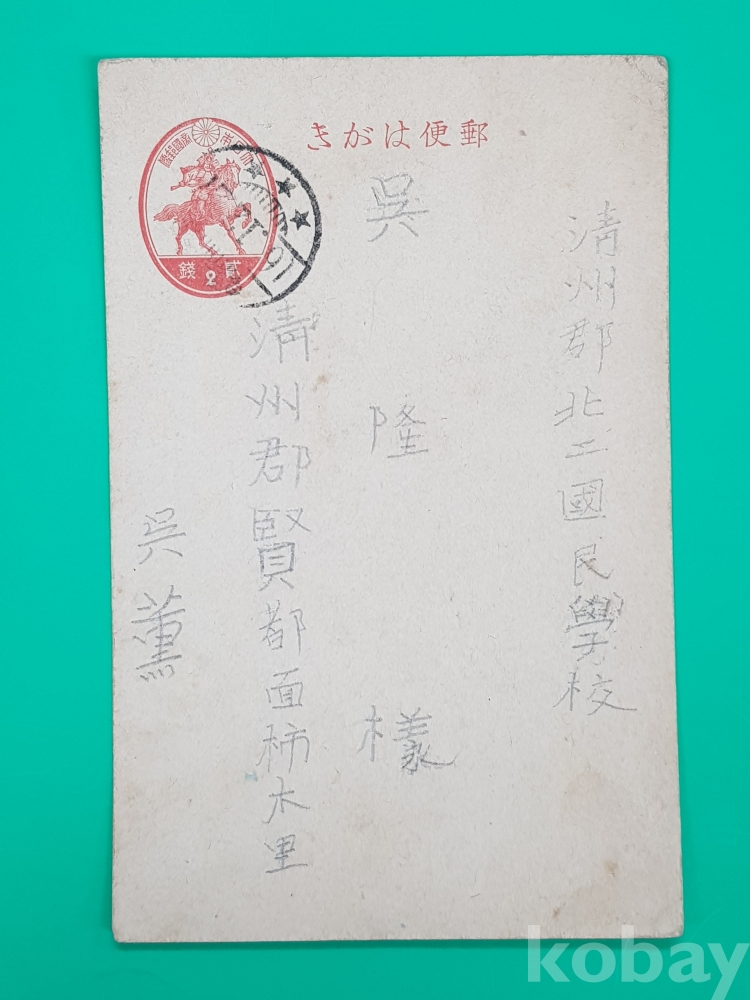 郵便はがき
大日本帝國郵便
貳錢
2
清州郡北二國民學校
呉隆様
清州郡賢都面柿木里
呉薫
kobay